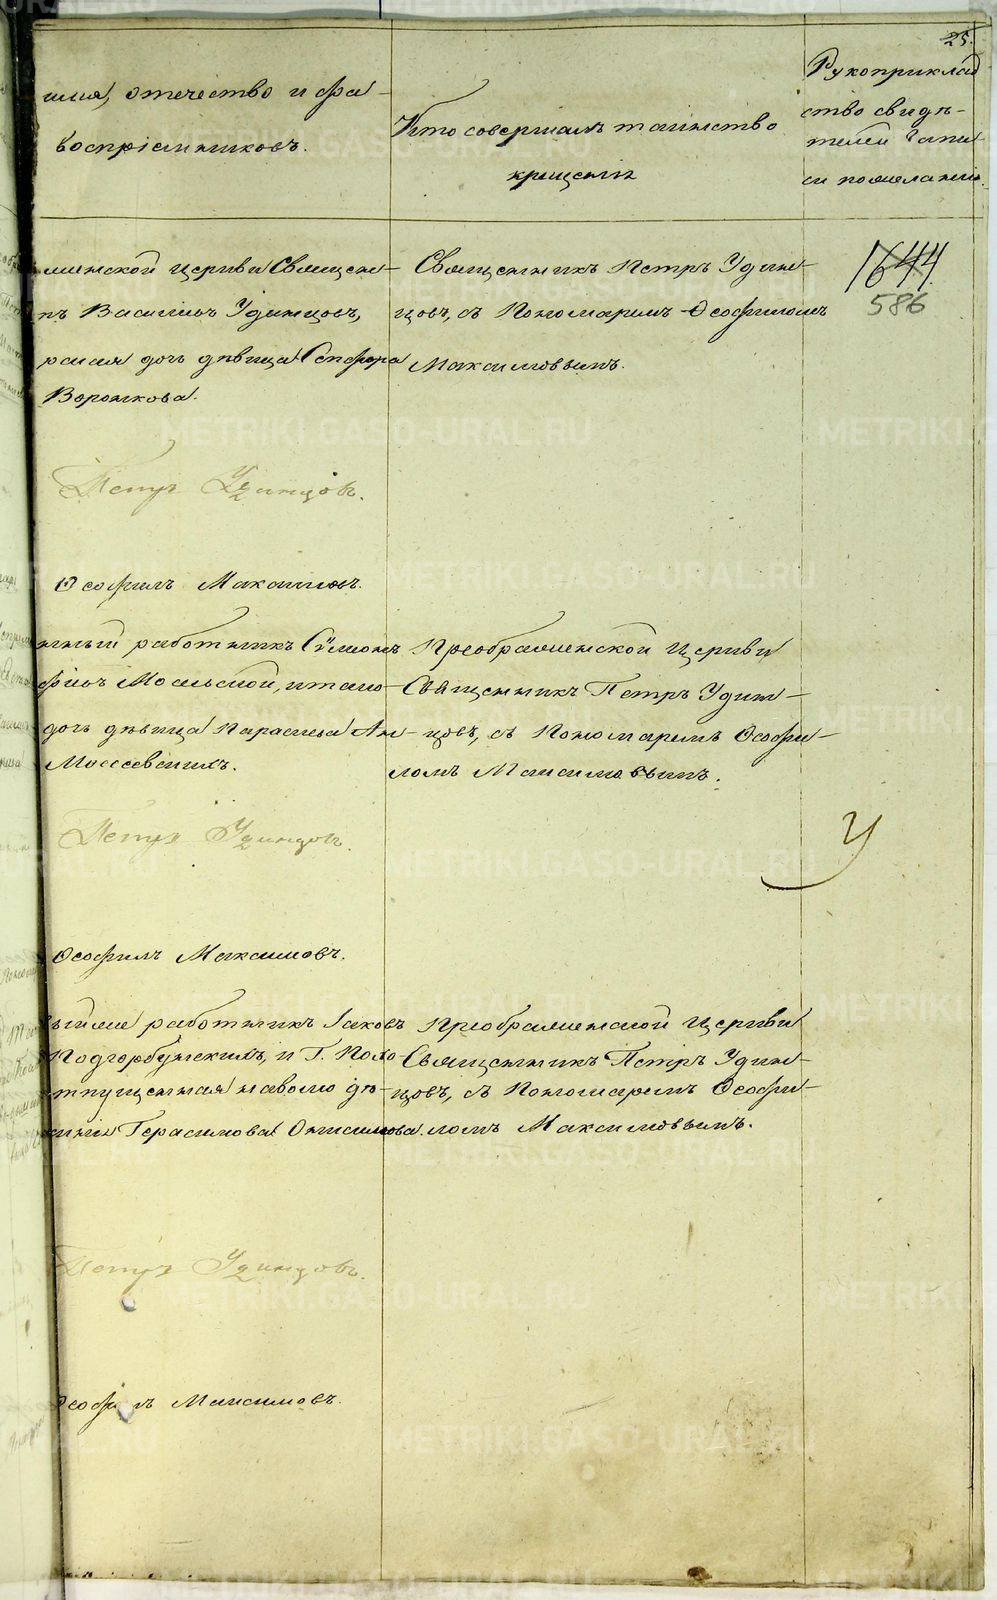 25.
имя, отечество и фа-
воспріемниковъ.
Кто совершалъ таинство
крещенія
Рукоприклад
ство свидѣ-
телей запи
си по желанію.
женской церкви Священ-
Василій Удинцовъ,
дочь дѣвица Сепфора
Воронкова.
Священникъ Петръ Удин-
цовъ, съ Пономаремъ Ѳеофиломъ
Максимовымъ.
1644
586
Петръ Удинцовъ.
Ѳеофилъ Максимовъ.
работникъ Сѷмеонъ
дочь дѣвица Параскева Ан
Моисеевскихъ.
Преображенской Церкви
Священникъ Петръ Удин-
цовъ, съ Пономаремъ Ѳеофи-
ломъ Максимовымъ.
Петръ Удинцовъ.
У
Ѳеофилъ Максимовъ.
работникъ Іаковъ
Подгорбунскихъ, и Г. Поко-
тпущенная наволю дѣ-
Герасимова Онисимова.
Преображенской Церкви
Священникъ Петръ Удин-
цовъ, съ Пономаремъ Ѳеофи-
ломъ Максимовымъ.
Петръ Удинцовъ.
Ѳеофилъ Максимовъ.
METRIKI.GASO-URAL.RU